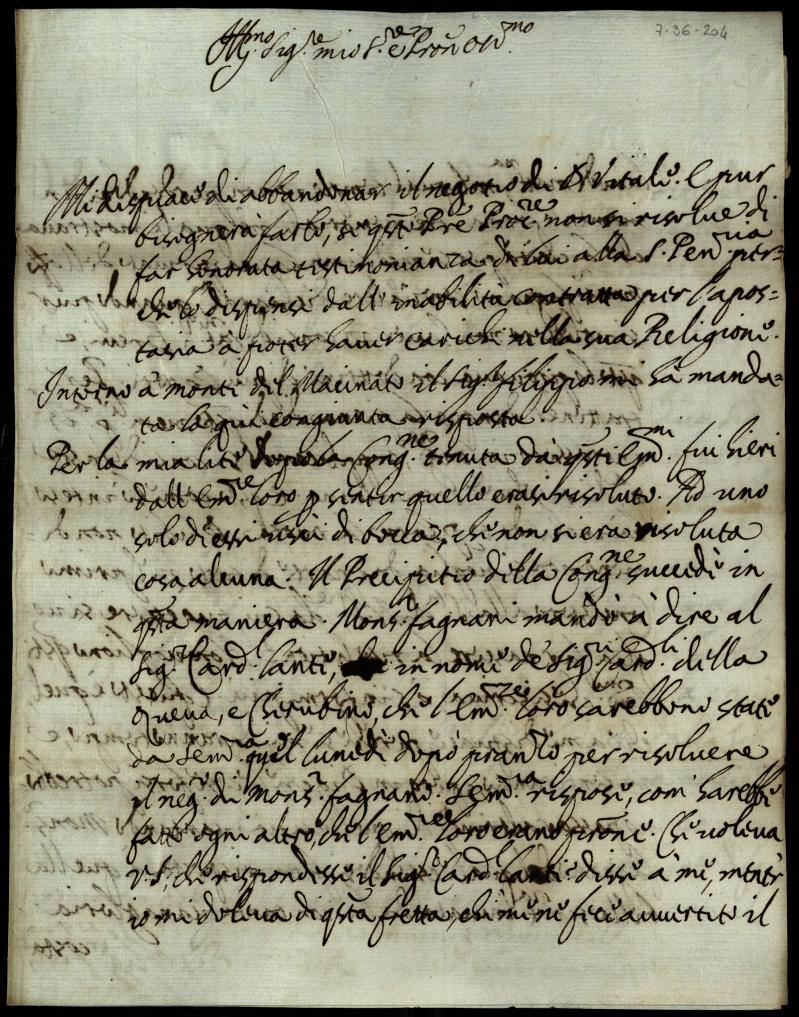 7-36-204
Ill.mo Sig.re mio S.re e Pron Oss.mo
Mi dispiace di abbandonar il negotio di D Vitale. E pur
bisognerà farlo, se q.sto Pre Proc.re non si risolue di
far honorata testimonianza di lui alla S. Pen.ria per=
che lo dispensi dall' inabilità contratta per l'apos=
tasia à poter hauer carichi nella sua Religione.
Intorno à monti del Macinato il Sig.r Filippo mi hà manda=
ta la qui congiunta risposta.
Per la mia lite dopo la Cong.ne tenuta da q.sti Em.mi fui hieri
dall' Em.ze loro p. sentir quello erasi risoluto. Ad uno
solo di essi uscì di bocca, che non si era risoluta
cosa alcuna. Il Precipitio della Cong.ne succedè in
q.sta maniera. Mons.r Fagnani mandò à dire al
Sig.r Card.l Lante, in nome de Sig.ri Card.li della
Queua, e Cherubino, che l' Em.ze loro sarebbono state
da S. Em.za quel lunedì dopò pranzo per risoluere
il neg.o di Mons.r Fagnano. S. Em.za rispose, com' harebbe
fatto ogni altro, che l' Em.ze loro erano prone. Che uoleua
VS, che rispondesse il Sig.r Card.l Lante disse à me, mentr'
io mi doleua di q.sta fretta, chi me ne fece auuertito il